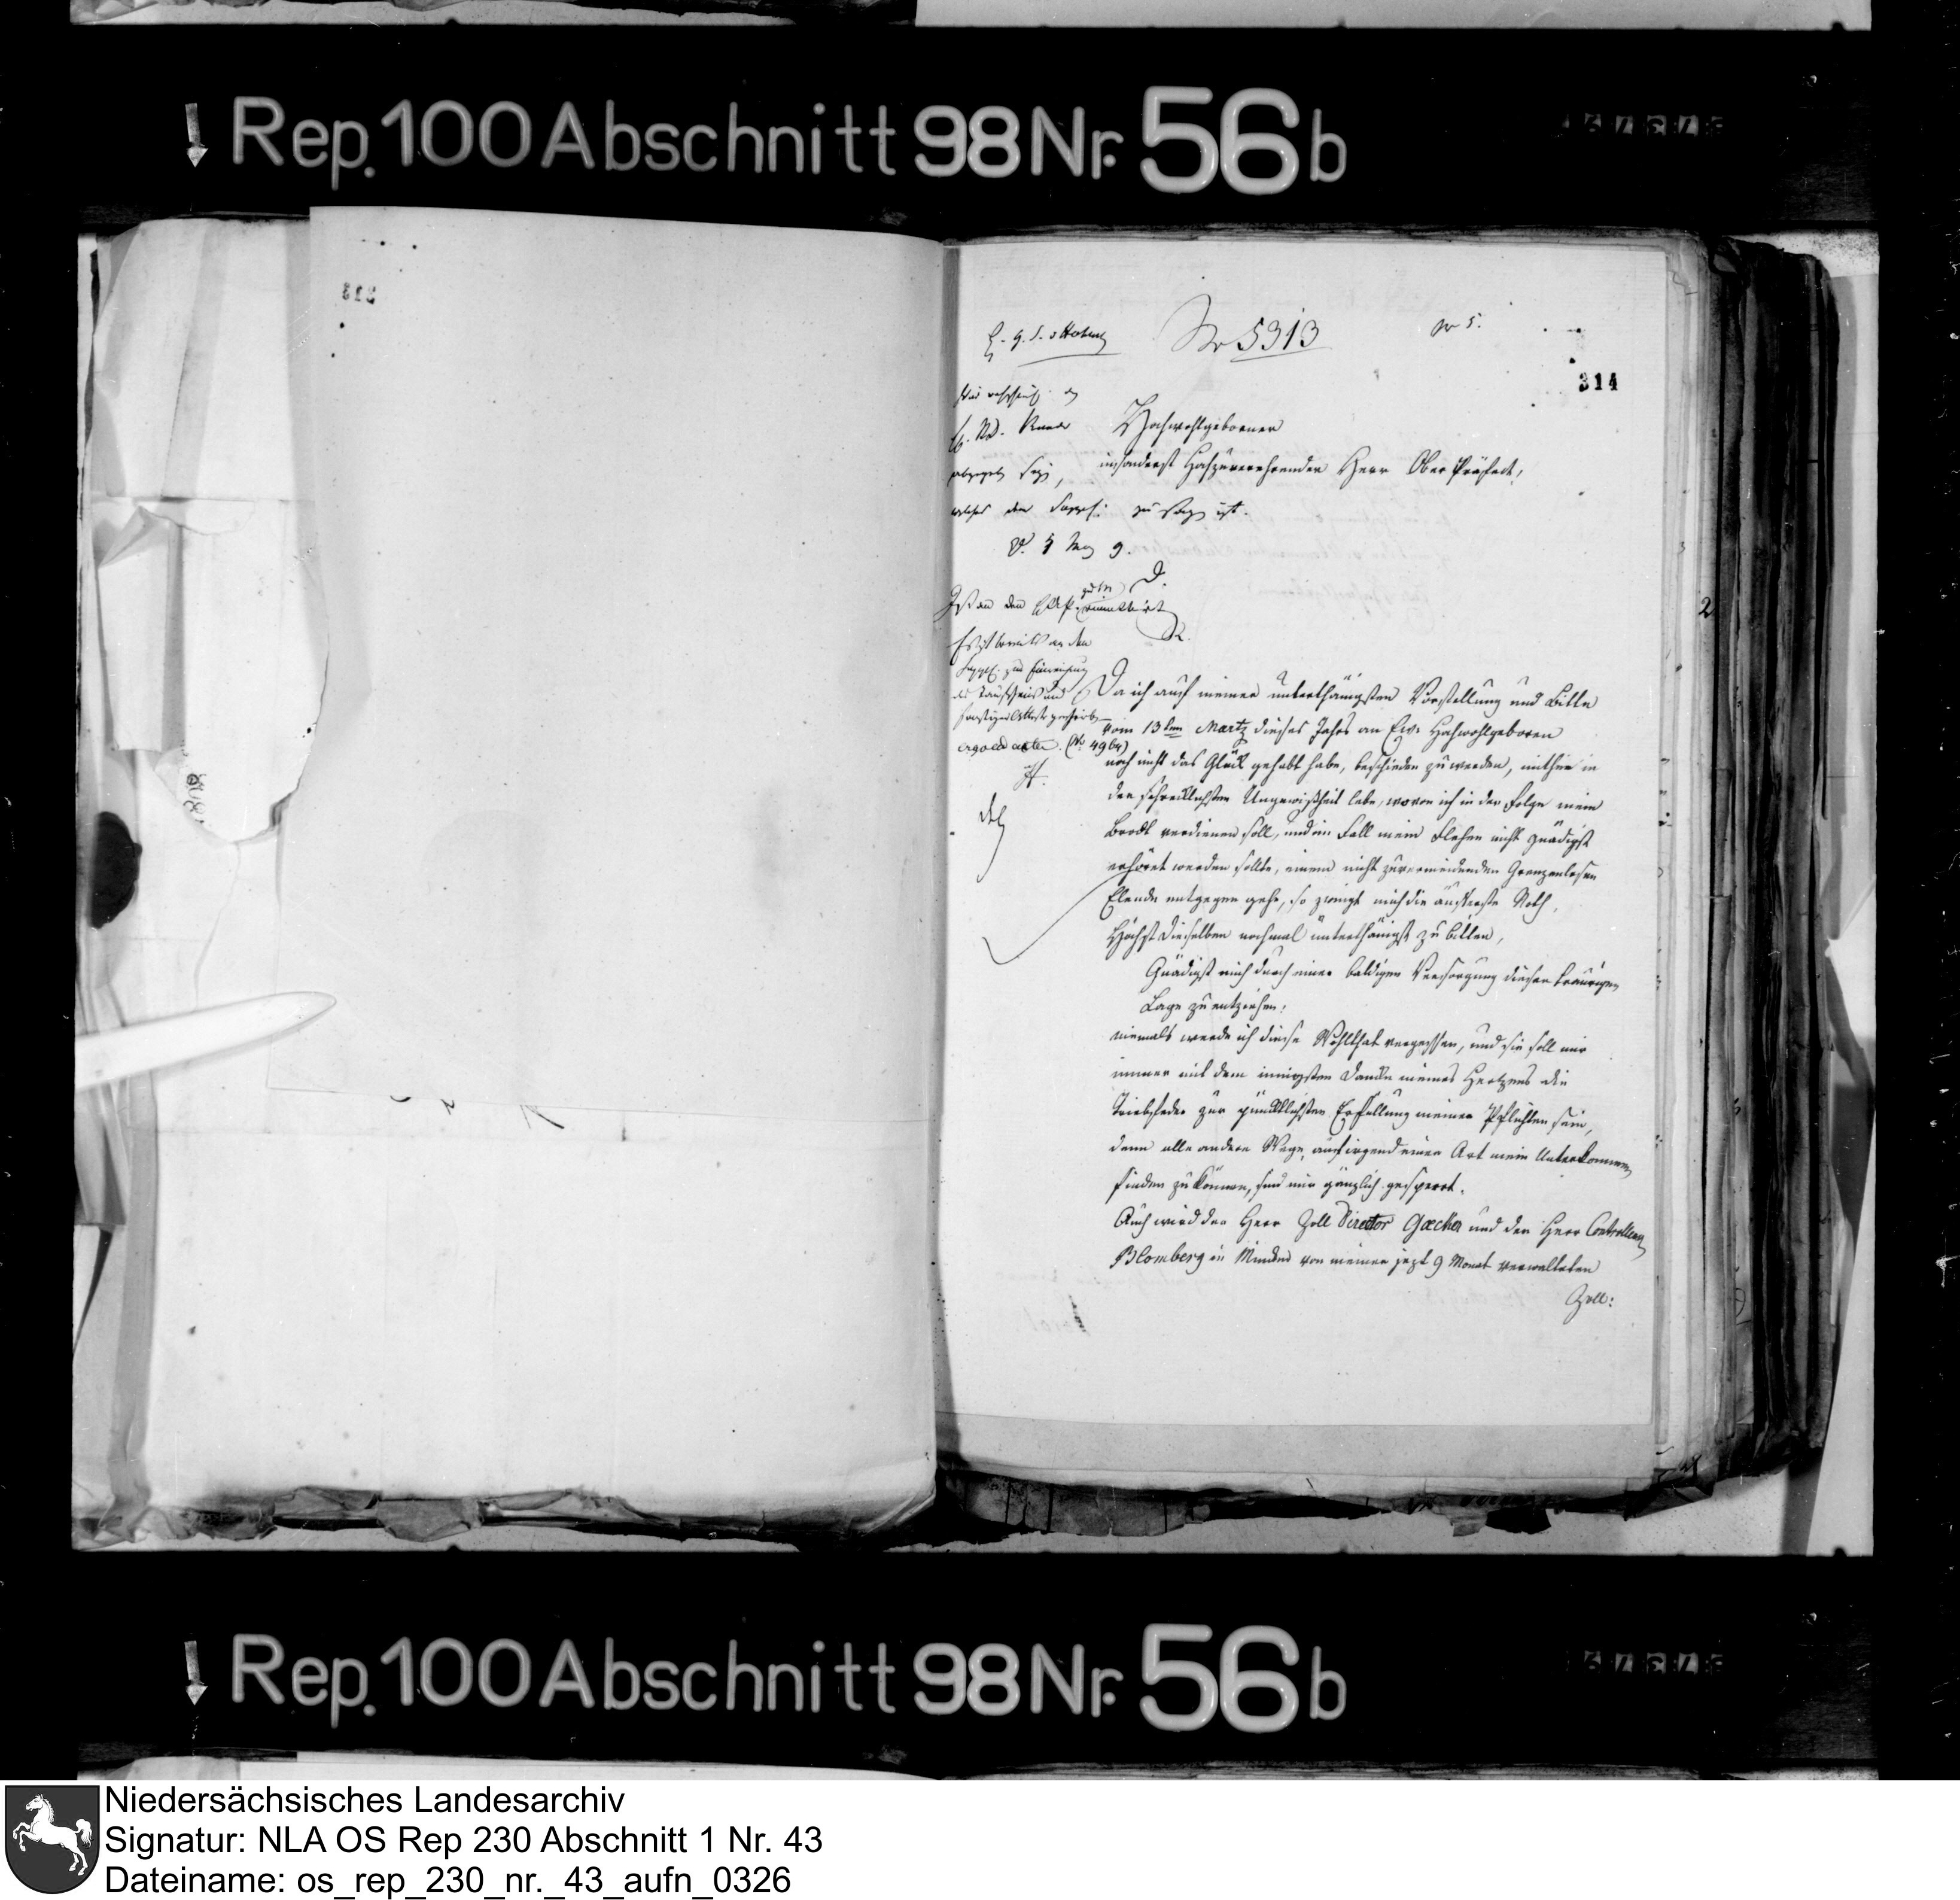 Rep. 100 Abschnitt 98 Nr. 56 b
313
Nr 5313
Nr 5.
314
Hochwohlgeborner
insonderst Hochzuverehrender Herr Ober Präfect,
zu sagen ist.
Ist an den
Es ist bereits an den
Suppl. zur Einreichung
des Taufscheins und
sonstiger Atteste geschrieben
ergo ad acta. (No 4964)
Da ich auf meiner unterthänigsten Vorstellung und Bitte
vom 13ten Martz dieses Jahrs an Ew. Hochwohlgeboren
noch nicht das Glück gehabt habe, beschieden zu werden, mithin in
der schrecklichsten Ungewißheit lebe, wovon ich in der Folge mein
Brodt verdienen soll, und im Fall mein Flehen nicht gnädigst
erhöret werden sollte, einem nicht zuvermeidenden Grenzenlosen
Elende entgegen gehe, so zwingt mich die äusserste Noth,
Höchst Dieselben nochmal unterthänigst zu bitten,
Gnädigst mich durch einer baldigen Versorgung dieser traurigen
Lage zu entziehen:
niemals werde ich diese Wohlthat vergessen, und sie soll mir
immer mit dem innigsten Danke meines Hertzens die
Triebfeder zur pünktlichsten Erfüllung meiner Pflichten sein,
denn alle andere Wege, auf irgend einer Art mein Unterkommen
finden zu können, sind mir gänzlich gesperrt.
Auch wird der Herr Zoll Director Gaecker und der Herr Controlleur
Blomberg in Minden von meiner jezt 9 Monat verwalteten
Zoll:
Rep. 100 Abschnitt 98 Nr. 56 b
Niedersächsisches Landesarchiv
Signatur: NLA OS Rep 230 Abschnitt 1 Nr. 43
Dateiname: os_rep_230_nr._43_aufn_0326